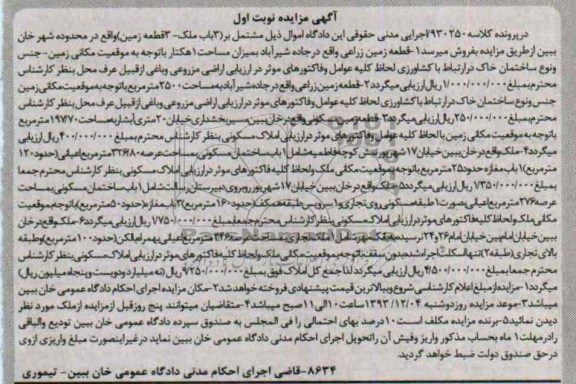 آگهی مزایده نوبت اول
درپرونده کلاسه ۹۳۰۲۵۰اجرایی مدنی حقوقی این دادگاه اموال ذیل مشتمل بر(۳باب ملک- ۳قطعه زمین)واقع در محدوده شهر خان
ببین ازطریق مزایده بفروش میرسد۱-قطعه زمین زراعی واقع درجاده شیرآباد بمیزان مساحت۱هکتار باتوجه به موقعیت مکانی زمین-جنس
ونوع ساختمان خاک درارتباط با کشاورزی لحاظ کلیه عوامل وفاکتورهای موثر در ارزیابی اراضی مزروعی وباغی ازقبیل عرف محل بنظر کارشناس
محترم بمبلغ۱/۰۰۰/۰۰۰/۰۰۰ریال ارزیابی میگردد۲-قطعه زمین زراعی واقع درجاده شیرآبادبه مساحت۲۵۰۰مترمربع باتوجه به موقعیت مکانی زمین
جنس ونوع ساختمان خاک درارتباط با کشاورزی لحاظ کلیه عوامل وفاکتورهای موثر درارزیابی اراضی مزروعی وباغی ازقبیل عرف محل بنظر کارشناس
محترم بمبلغ۲۵۰/۰۰۰/۰۰۰ریال ارزیابی میگردد۳-قطعه زمین مسکونی واقع درخان ببین مسیربخشداری خیابان۲۰متری ایثاربه مساحت۱۹۷/۷۰مترمربع
باتوجه به موقعیت مکانی زمین بالحاظ کلیه عوامل وفاکتورهای موثر درارزیابی املاک مسکونی بنظر کارشناس محترم بمبلغ۴۰۰/۰۰۰/۰۰۰ریال ارزیابی
میگردد۴-ملک واقع درخان ببین خیابان۱۷شهریورنبش کوچه فاطمیه شامل۱باب ساختمان مسکونی بمساحت عرصه۳۲۶/۸۰مترمربع اعیانی(حدود۱۲۰
مترمربع)۱باب مغازه حدود۲۵مترمربع باتوجه به موقعیت مکانی ملک ولحاظ کلیه فاکتورهای موثر درارزیابی املاک مسکونی بنظر کارشناس محترم جمعا
بمبلغ۱/۳۵۰/۰۰۰/۰۰۰ریال ارزیابی میگردد۵-ملک واقع درخان ببین خیابان۱۷شهریورروبروی دبیرستان رسالت شامل۱باب ساختمان مسکونی بمساحت
عرصه۲۷۶مترمربع اعیانی بصورت۱طبقه مسکونی روی تجاری و۱سرویس طبقه همکف(حدود۱۶۰مترمربع)۳باب مغازه(حدود۵۰مترمربع)باتوجه به موقعیت
مکانی ملک ولحاظ کلیه فاکتورهای موثر درارزیابی املاک مسکونی بنظر کارشناس محترم جمعا بمبلغ۱/۷۵۰/۰۰۰/۰۰۰ریال ارزیابی میگردد۶-ملک واقع درخان
ببین خیابان امام بین خیابان امام۲۴و۲۶نرسیده به ملک شامل۱ملک تجاری بمساحت عرصه۲۴۶مترمربع اعیانی بهمراه بالکن(حدود۱۰۰مترمربع)وطبقه
بالای تجاری(طبقه۲)تنهااسکلت اجراشده بدون سقف باتوجه به موقعیت مکانی ملک ولحاظ کلیه فاکتورهای موثردرارزیابی املاک مسکونی بنظر کارشناس
محترم جمعا بمبلغ۴/۵۰۰/۰۰۰/۰۰۰ریال ارزیابی میگردد لذا جمع کل املاک فوق بمبلغ۹/۲۵۰/۰۰۰/۰۰۰ریال(نه میلیاردودویست وپنجاه میلیون ریال)
میگردد۱-مزایده ازمبلغ اعلام کارشناسی شروع وببالاترین قیمت پیشنهادی فروخته خواهدشد۲-مکان مزایده اجرای احکام دادگاه عمومی خان ببین
میباشد۳-موعد مزایده روزدوشنبه ۱۳۹۳/۱۲/۰۴ساعت۱۰الی۱۱صبح میباشد۴-متقاضیان میتوانند پنج روزقبل ازمزایده ازملک مورد نظر
دیدن نمائید۵-برنده مزایده مکلف است۱۰درصد بهای احتمالی را فی المجلس به صندوق سپرده دادگاه عمومی خان ببین تودیع والباقی
رادرمهلت۱ ماه بحساب مذکور واریز وفیش آن راتحویل اجرای احکام دادگاه عمومی خان ببین نماید درغیراینصورت مبلغ واریزی ازوی
درحق صندوق دولت ضبط خواهد گردید.
۸۶۳۴-قاضی اجرای احکام مدنی دادگاه عمومی خان ببین- تیموری